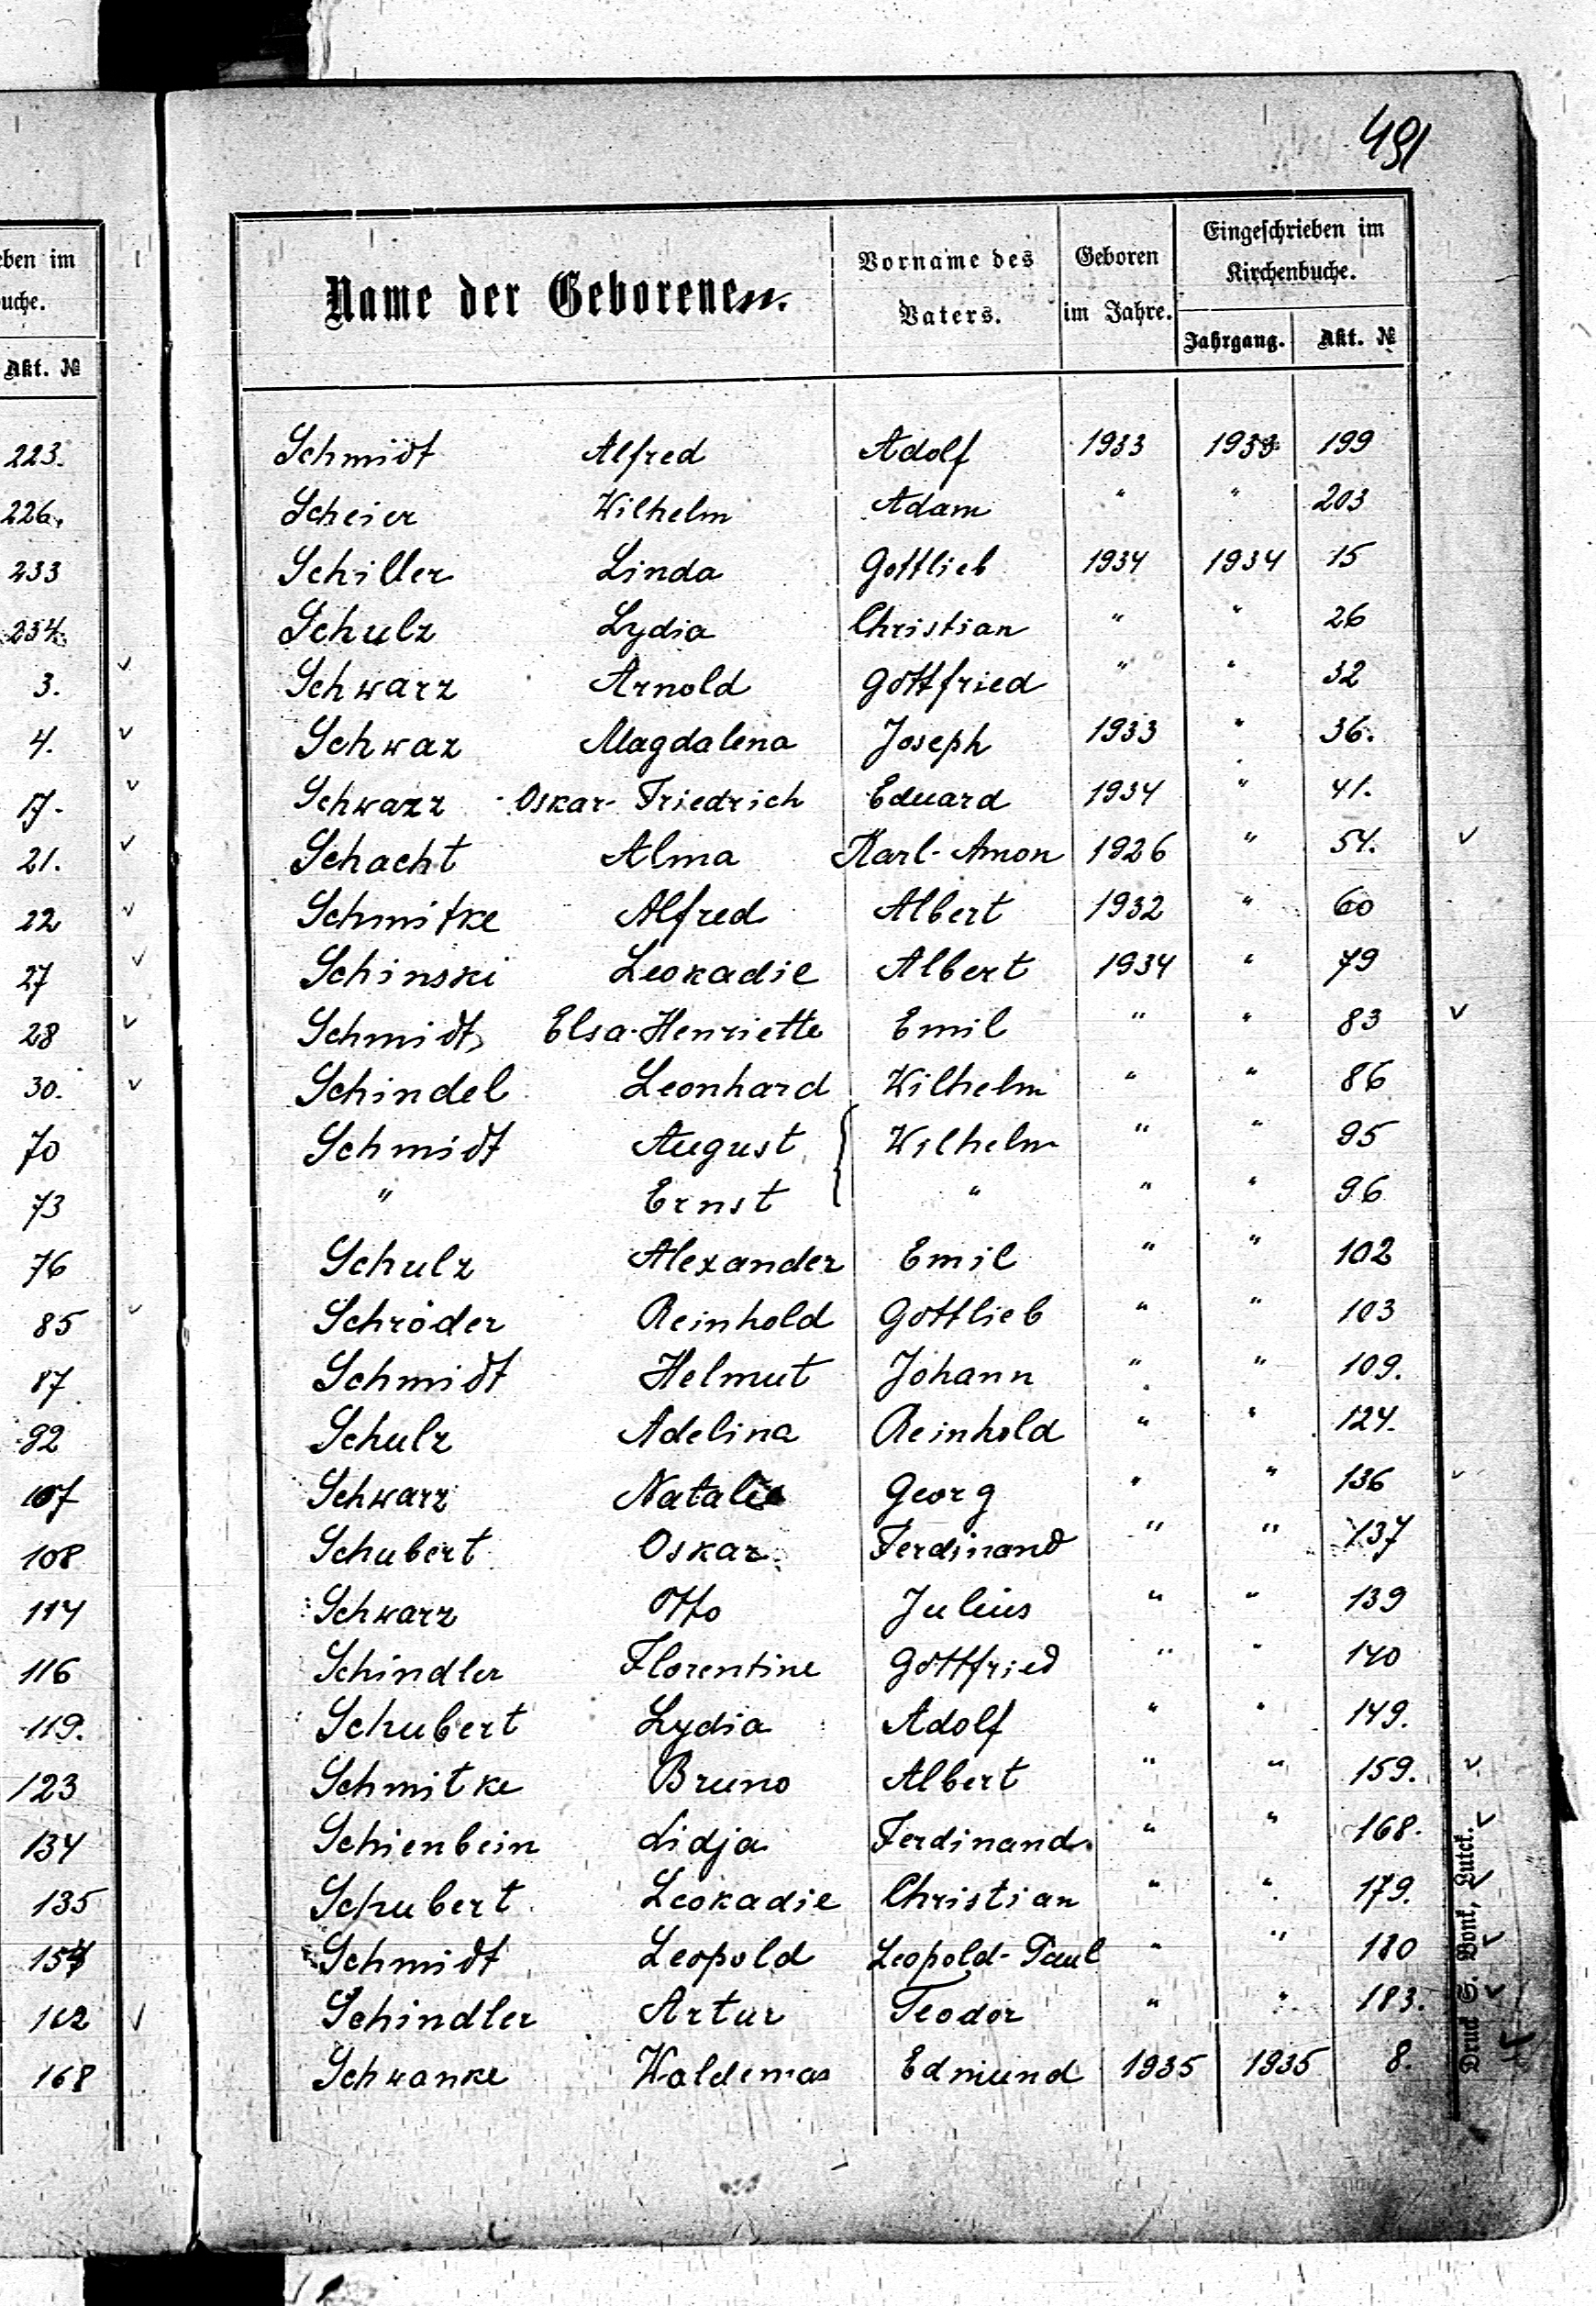 491
eben im
uche.
Akt. №
223.
226.
233
234.
3.
4.
17.
21.
22
27
28
30.
70
73
76
85
87
92
107
108
114
116
119.
123
134
135
154
162
168
Name der Geborenen. Vorname des Vaters. Geboren im Jahre. Eingeschrieben im Kirchenbuche.
Jahrgang. Akt. №
Schmidt Alfred Adolf 1933 1933 199
Scheier Wilhelm Adam " " 203
Schiller Linda Gottlieb 1934 1934 15
Schulz Lydia Christian " " 26
Schwarz Arnold Gottfried " " 32
Schwaz Magdalena Joseph 1933 " 36.
Schwarz Oskar-Friedrich Eduard 1934 " 41.
Schacht Alma Karl-Amon 1926 " 54.
Schmitke Alfred Albert 1932 " 60
Schinski Leokadie Albert 1934 " 79
Schmidt Elsa-Henriette Emil " " 83
Schindel Leonhard Wilhelm " " 86
Schmidt August Wilhelm " " 95
" Ernst " " " 96
Schulz Alexander Emil " " 102
Schröder Reinhold Gottlieb " " 103
Schmidt Helmut Johann " " 109.
Schulz Adelina Reinhold " " 124.
Schwarz Natalie Georg " " 136
Schubert Oskar Ferdinand " " 137
Schwarz Otto Julius " " 139
Schindler Florentine Gottfried " " 140
Schubert Lydia Adolf " " 149.
Schmitke Bruno Albert " " 159.
Schienbein Lidja Ferdinand " " 168.
Schubert Leokadie Christian " " 179.
Schmidt Leopold Leopold-Paul " " 180
Schindler Artur Teodor " " 183.
Schwanke Waldemar Edmund 1935 1935 8.
Druck S. Bonk, Lutck.